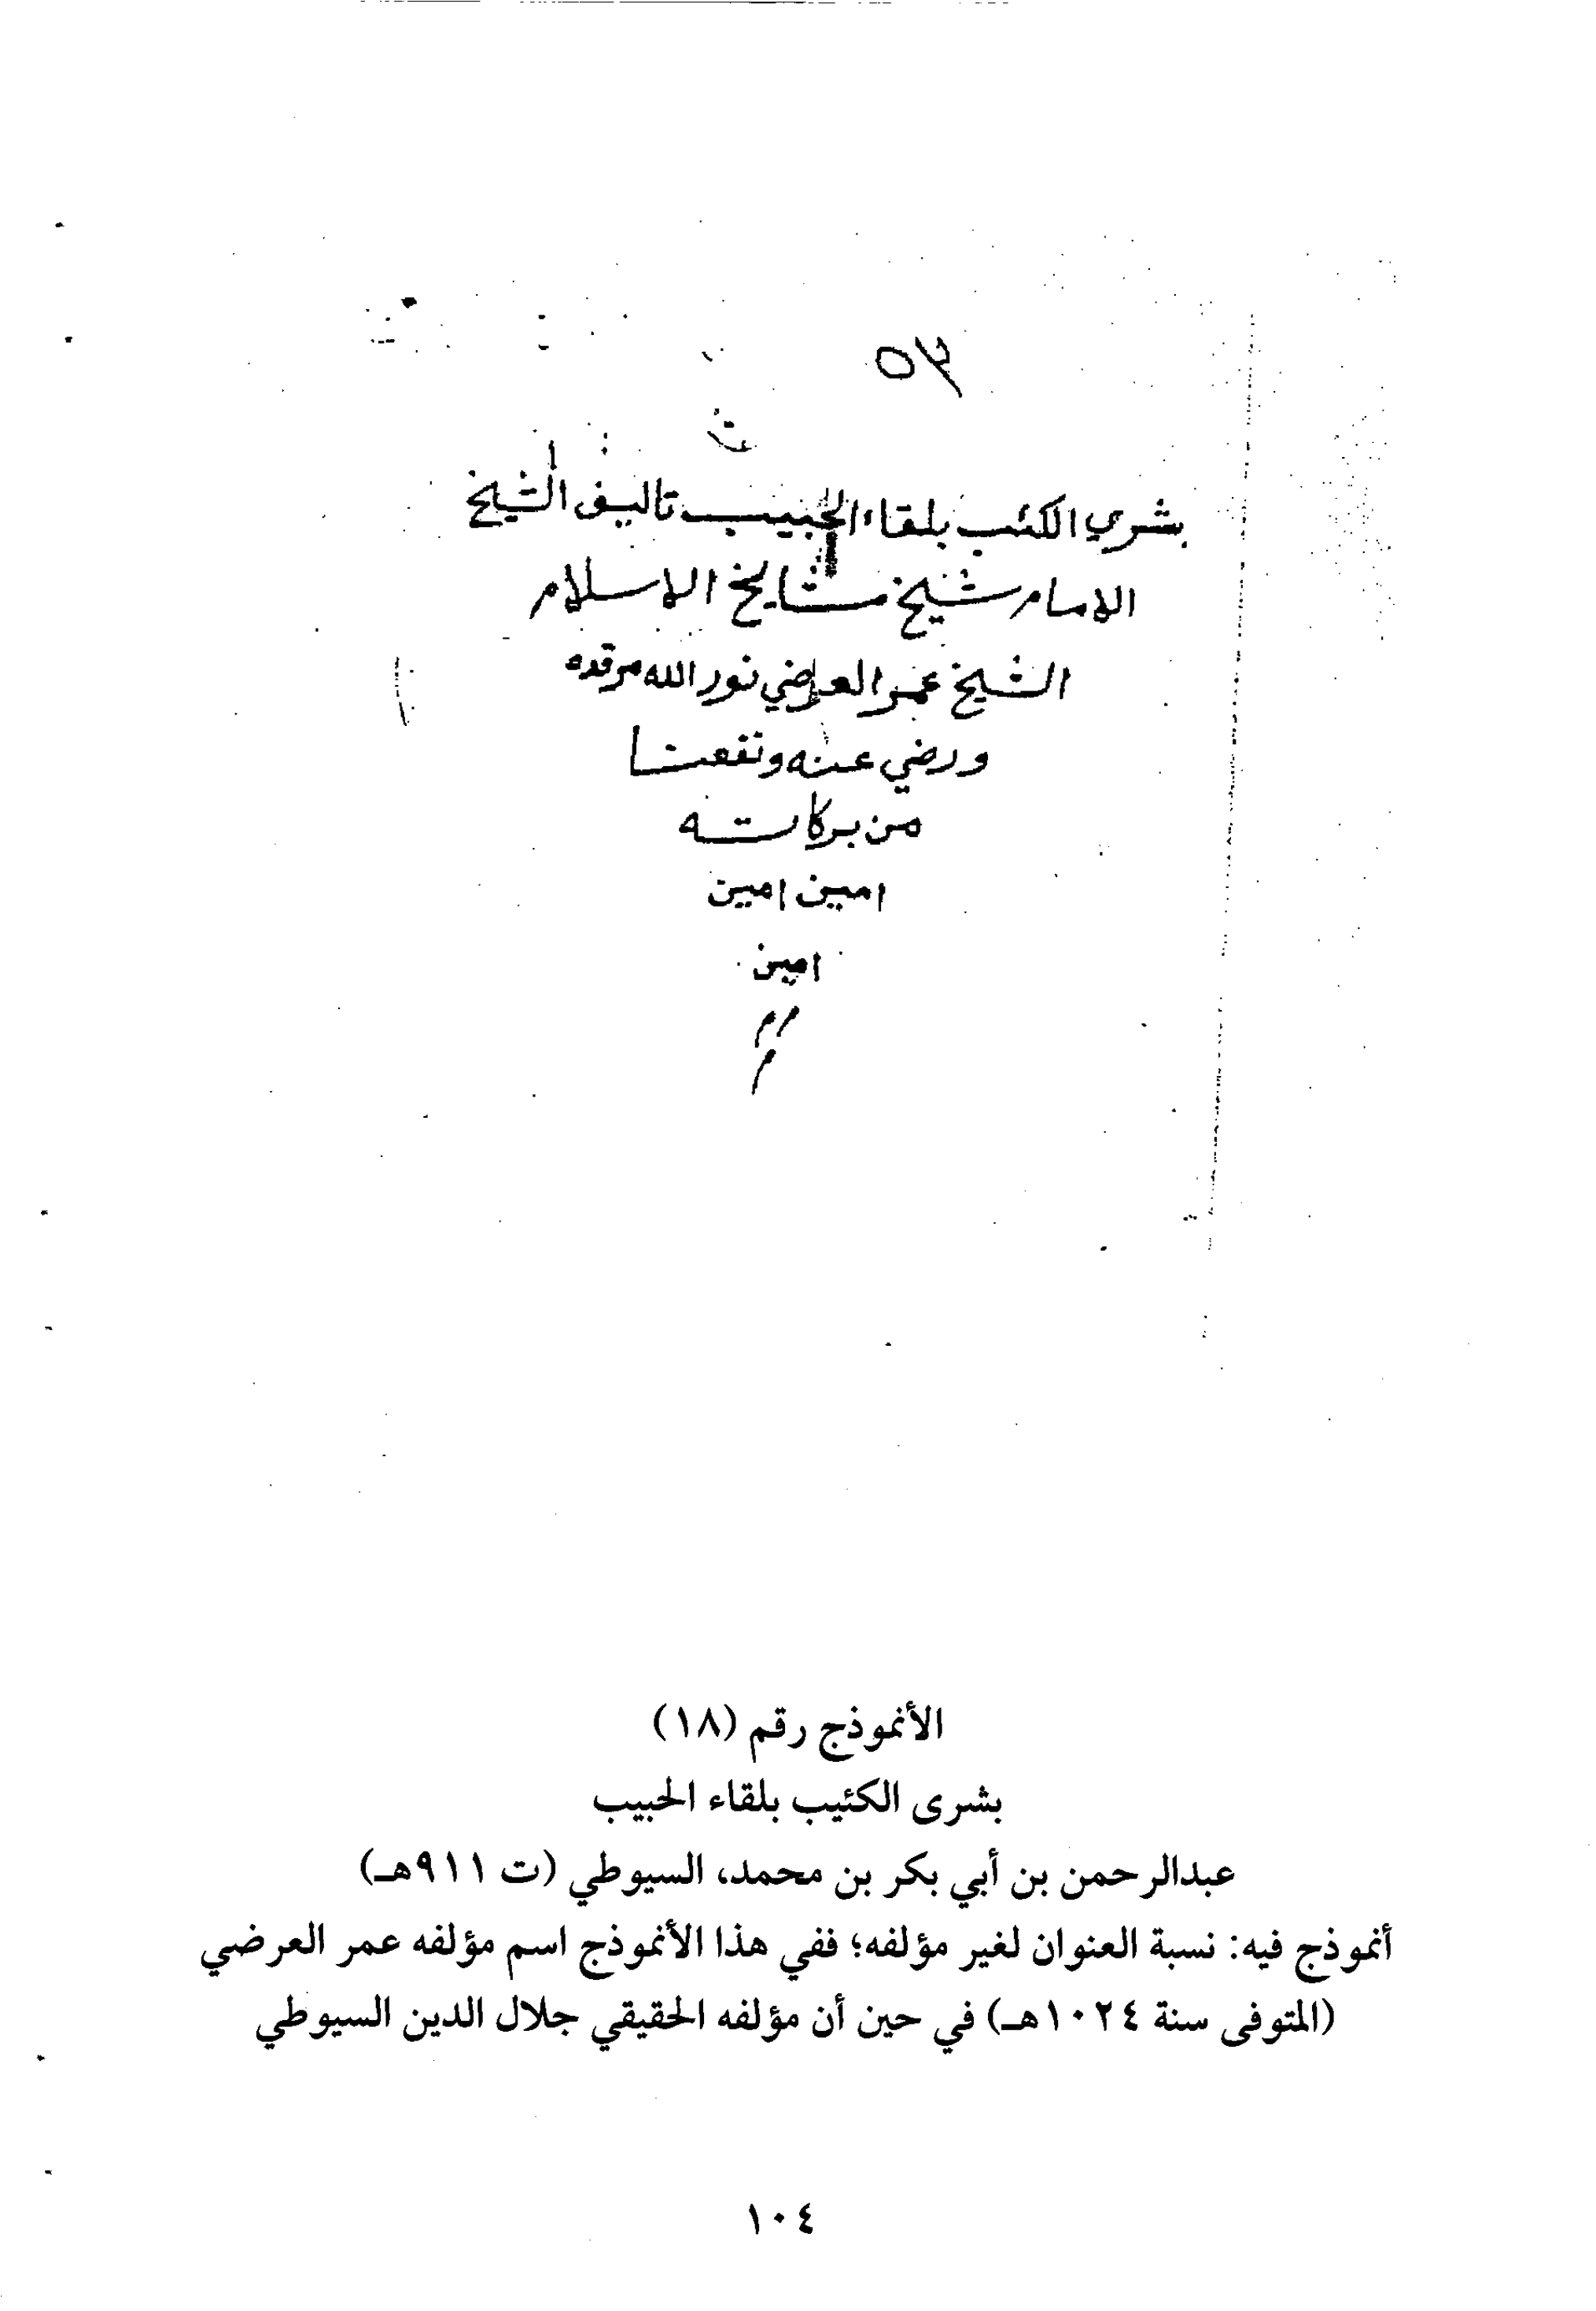 ٥٣
بشري الكئب بلقاء الحبيب تاليف الشيخ
الامام شيخ مشايخ الاسلام
الشيخ عمر العرضي نور الله مرقده
ورضي عنه ونفعنا
من بركاته
امين امين
امين
الأنموذج رقم (١٨)
بشرى الكئيب بلقاء الحبيب
عبدالرحمن بن أبي بكر بن محمد، السيوطي (ت ٩١١هـ)
أنموذج فيه: نسبة العنوان لغير مؤلفه؛ ففي هذا الأنموذج اسم مؤلفه عمر العرضي
(المتوفى سنة ١٠٢٤هـ) في حين أن مؤلفه الحقيقي جلال الدين السيوطي
١٠٤